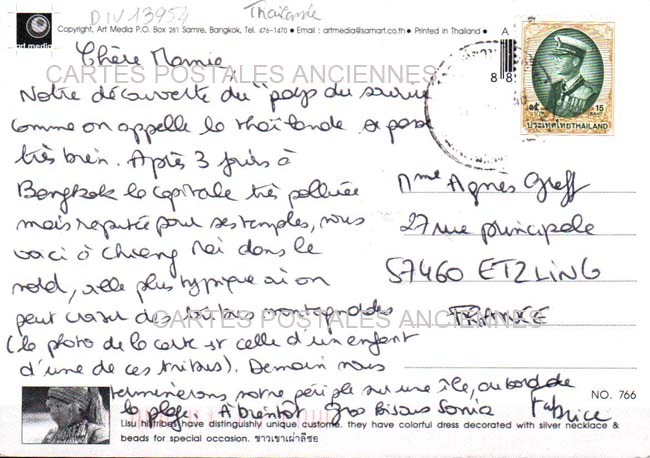 DIV13954
Thaïlande
art media
Copyright, Art Media P.O. Box 281 Samre, Bangkok, Tel. 476-1470 • Email : artmedia@samart.co.th • Printed in Thailand • A
8
15
ประเทศไทย THAILAND
Chère Mamie
CARTES POSTALES ANCIENNES
Notre découverte du "pays du sourire
comme on appelle la thaïlande se passe
très bien. Après 3 jours à
Bangkok la capitale très polluée
mais réputée pour ses temples, nous
voici à Chiang Mai dans le
nord, ville plus typique où on
peut croiser des tribus montagnardes
CARTES POSTALES ANCIENNES
(la photo de la carte est celle d'un enfant
d'une de ces tribus). Demain nous
terminerons notre périple sur une île, au bord de
la plage. A bientôt gros bisous Sonia Fabrice
Mme Agnès Greff
27 rue principale
57460 ETZLING
FRANCE
NO. 766
Lisu hilltribes have distinguishly unique custome. they have colorful dress decorated with silver necklace &
beads for special occasion. ชาวเขาเผ่าลีซอ